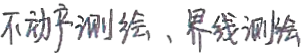 不动产测绘、界线测绘